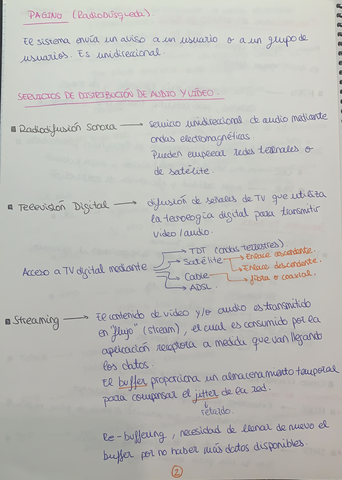 PAGING (Radiobúsqueda)
El sistema envía un aviso a un usuario o a un grupo de
usuarios. Es unidireccional.
SERVICIOS DE DISTRIBUCIÓN DE AUDIO Y VÍDEO.
Radiodifusión Sonora → Servicio unidireccional de audio mediante
ondas electromagnéticas.
Pueden emplear redes terrenales o
de satélite.
Televisión Digital → difusión de señales de TV que utiliza
la tecnología digital para transmitir
video/audio.
Acceso a TV digital mediante
→ TDT (ondas terrestres).
→ Satélite → Enlace ascendente.
→ Enlace descendente.
→ Cable → fibra o coaxial.
→ ADSL.
Streaming → El contenido de vídeo y/o audio es transmitido
en "flujo" (stream), el cual es consumido por la
aplicación receptora a medida que van llegando
los datos.
El buffer proporciona un almacenamiento temporal
para compensar el jitter de la red.
↓
retardo.
Re-buffering, necesidad de llenar de nuevo el
buffer por no haber más datos disponibles.
2